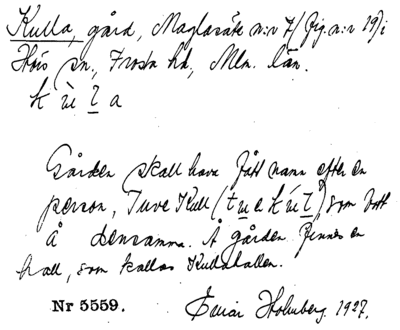 Kulla, gård, Maglasäte n:r 7 (fig. n:r 19) i
Hörs sn., Frosta hd, Mlm. län.
k ù l a
Gården skall hava fått namn efter en
person, Tuve Kull (tue kúl), som bott
å densamma. Å gården finnes en
hall, som kallas Kullahallen.
Nr 5559. Einar Holmberg 1927.